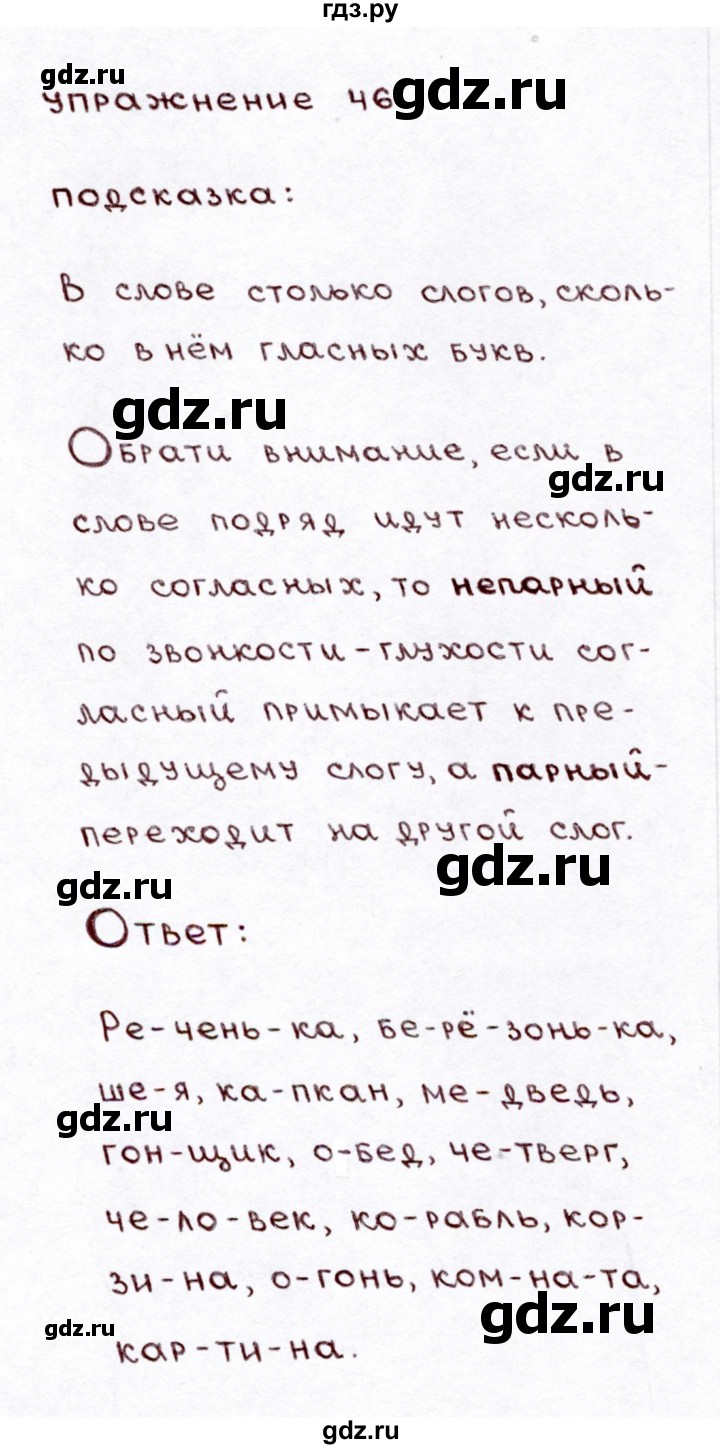 гдз.ру
gdz.ru
упражнение 46
gdz.ru
подсказка:
В слове столько слогов, сколь-
ко в нём гласных букв.
gdz.ru
Обрати внимание, если в
gdz.ru
слове подряд идут несколь-
ко согласных, то непарный
по звонкости-глухости сог-
ласный примыкает к пре-
дыдущему слогу, а парный-
переходит на другой слог.
gdz.ru
gdz.ru
Ответ:
Ре-чень-ка, бе-рё-зонь-ка,
ше-я, ка-пкан, ме-дведь,
gdz.ru
гон-щик, о-бед, че-тверг,
че-ло-век, ко-рабль, кор-
зи-на, о-гонь, ком-на-та,
gdz.ru
gdz.ru
кар-ти-на.
gdz.ru